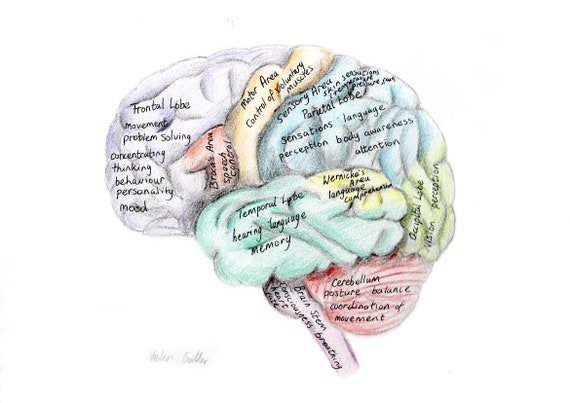 Frontal Lobe
movement
problem solving
concentrating
thinking
behaviour
personality
mood
Broca's Area
speech
control
Motor Area
Control of Voluntary
muscles
Sensory Area sensations
skin
temperature
pressure, pain
Parietal Lobe
sensations language
perception body awareness
attention
Wernicke's
Area
language
comprehension
Temporal Lobe
hearing language
memory
Occipital Lobe
vision perception
Cerebellum
posture balance
coordination of
movement
Brain Stem
consciousness breathing
heart
Helen